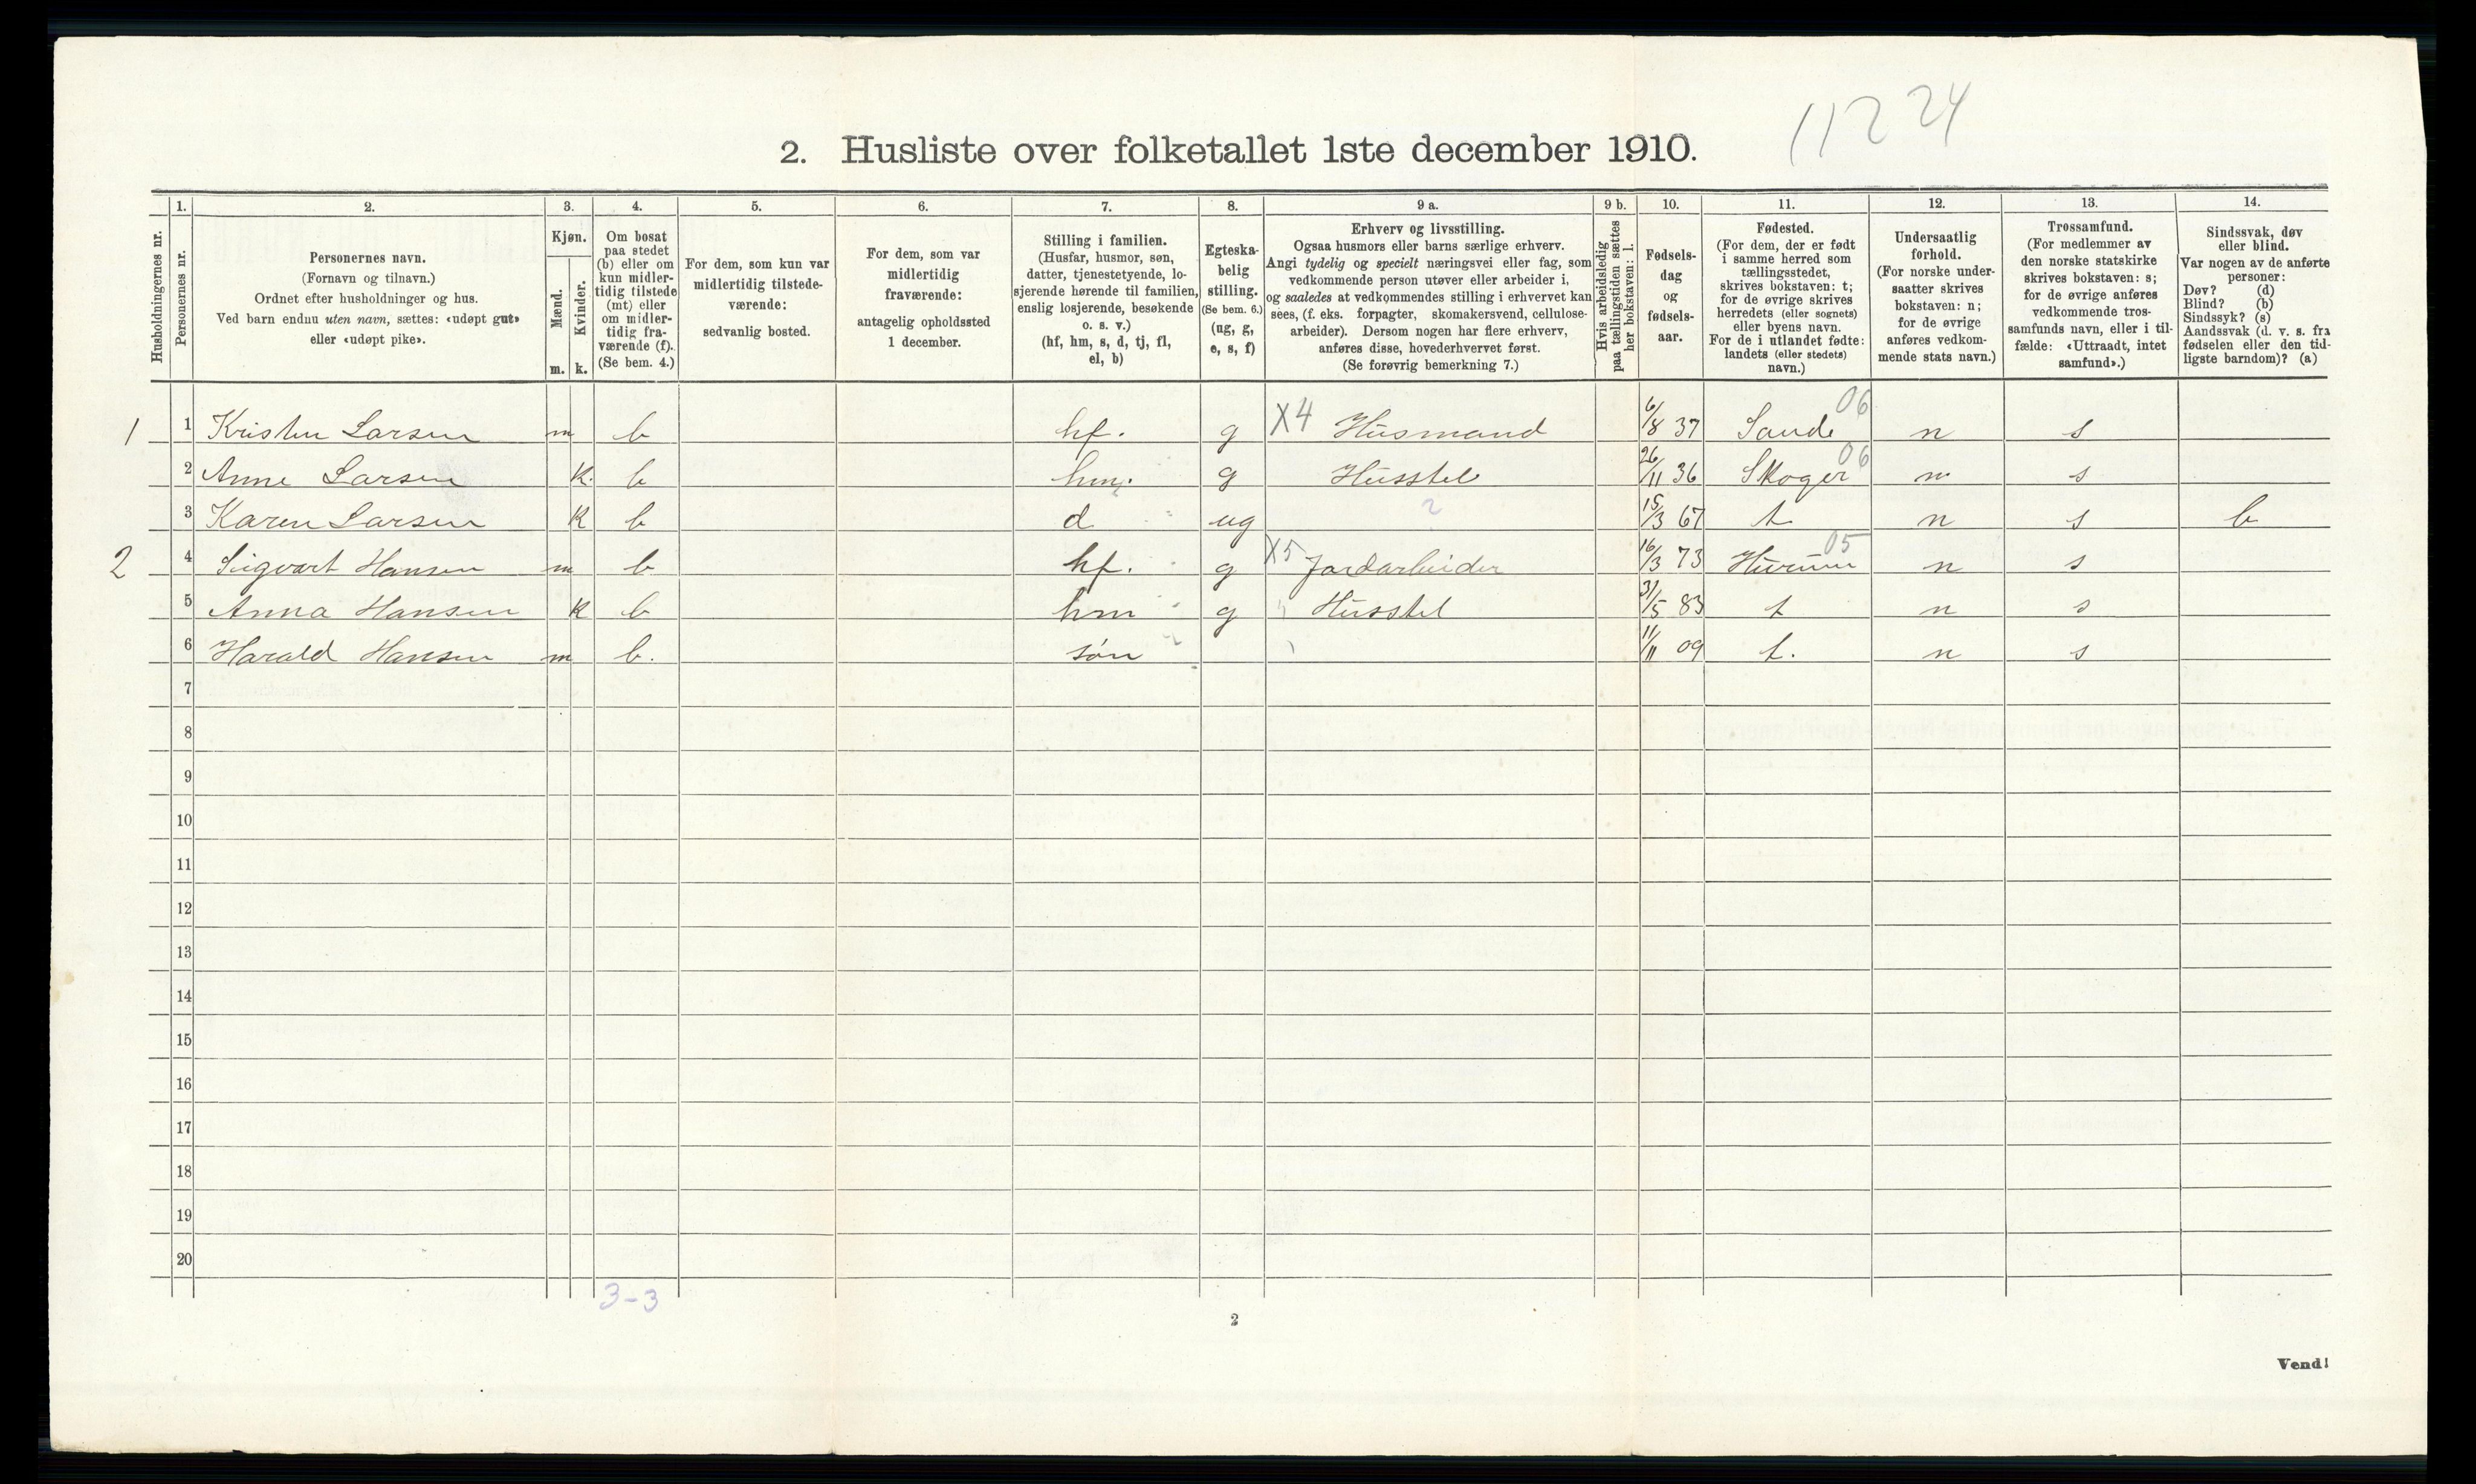 1124
2. Husliste over folketallet 1ste december 1910.
1. 2. 3. 4. 5. 6. 7. 8. 9 a. 9 b. 10. 11. 12. 13. 14.
Husholdningernes nr.
Personernes nr.
Personernes navn.
(Fornavn og tilnavn.)
Ordnet efter husholdninger og hus.
Ved barn endnu uten navn, sættes: «udøpt gut»
eller «udøpt pike».
Kjøn.
Mænd.
Kvinder.
m. k.
Om bosat
paa stedet
(b) eller om
kun midler-
tidig tilstede
(mt) eller
om midler-
tidig fra-
værende (f).
(Se bem. 4.)
For dem, som kun var
midlertidig tilstede-
værende:
sedvanlig bosted.
For dem, som var
midlertidig
fraværende:
antagelig opholdssted
1 december.
Stilling i familien.
(Husfar, husmor, søn,
datter, tjenestetyende, lo-
sjerende hørende til familien,
enslig losjerende, besøkende
o. s. v.)
(hf, hm, s, d, tj, fl,
el, b)
Egteska-
belig
stilling.
(Se bem. 6.)
(ug, g,
e, s, f)
Erhverv og livsstilling.
Ogsaa husmors eller barns særlige erhverv.
Angi tydelig og specielt næringsvei eller fag, som
vedkommende person utøver eller arbeider i,
og saaledes at vedkommendes stilling i erhvervet kan
sees, (f. eks. forpagter, skomakersvend, cellulose-
arbeider). Dersom nogen har flere erhverv,
anføres disse, hovederhvervet først.
(Se forøvrig bemerkning 7.)
Hvis arbeidsledig
paa tællingstiden sættes
her bokstaven: l.
Fødsels-
dag
og
fødsels-
aar.
Fødested.
(For dem, der er født
i samme herred som
tællingsstedet,
skrives bokstaven: t;
for de øvrige skrives
herredets (eller sognets)
eller byens navn.
For de i utlandet fødte:
landets (eller stedets)
navn.)
Undersaatlig
forhold.
(For norske under-
saatter skrives
bokstaven: n;
for de øvrige
anføres vedkom-
mende stats navn.)
Trossamfund.
(For medlemmer av
den norske statskirke
skrives bokstaven: s;
for de øvrige anføres
vedkommende tros-
samfunds navn, eller i til-
fælde: «Uttraadt, intet
samfund».)
Sindssvak, døv
eller blind.
Var nogen av de anførte
personer:
Døv? (d)
Blind? (b)
Sindssyk? (s)
Aandssvak (d. v. s. fra
fødselen eller den tid-
ligste barndom)? (a)
1 1 Kristen Larsen m b hf. g X4 Husmand 6/8 37 Sande 06 n s
2 Anne Larsen k. b hm. g Husstel 26/11 36 Skoger 06 n s
3 Karen Larsen k b d ug 2 15/3 67 t n s b
2 4 Sigvart Hansen m b hf. g X5 Jordarbeider 16/3 73 Hurum 05 n s
5 Anna Hansen k b hm g Husstel 31/5 83 t n s
6 Harald Hansen m b. søn 11/11 09 t. n s
7
8
9
10
11
12
13
14
15
16
17
18
19
20
3-3
2
Vend!